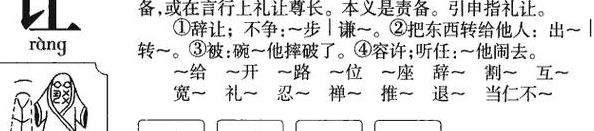 让
ràng
备,或在言行上礼让尊长。本义是责备。引申指礼让。
①辞让;不争:~步|谦~。②把东西转给他人:出~|
转~。③被:碗~他摔破了。④容许;听任:~他闹去。
~给 ~开 ~路 ~位 ~座 辞~ 割~ 互~
宽~ 礼~ 忍~ 禅~ 推~ 退~ 当仁不~